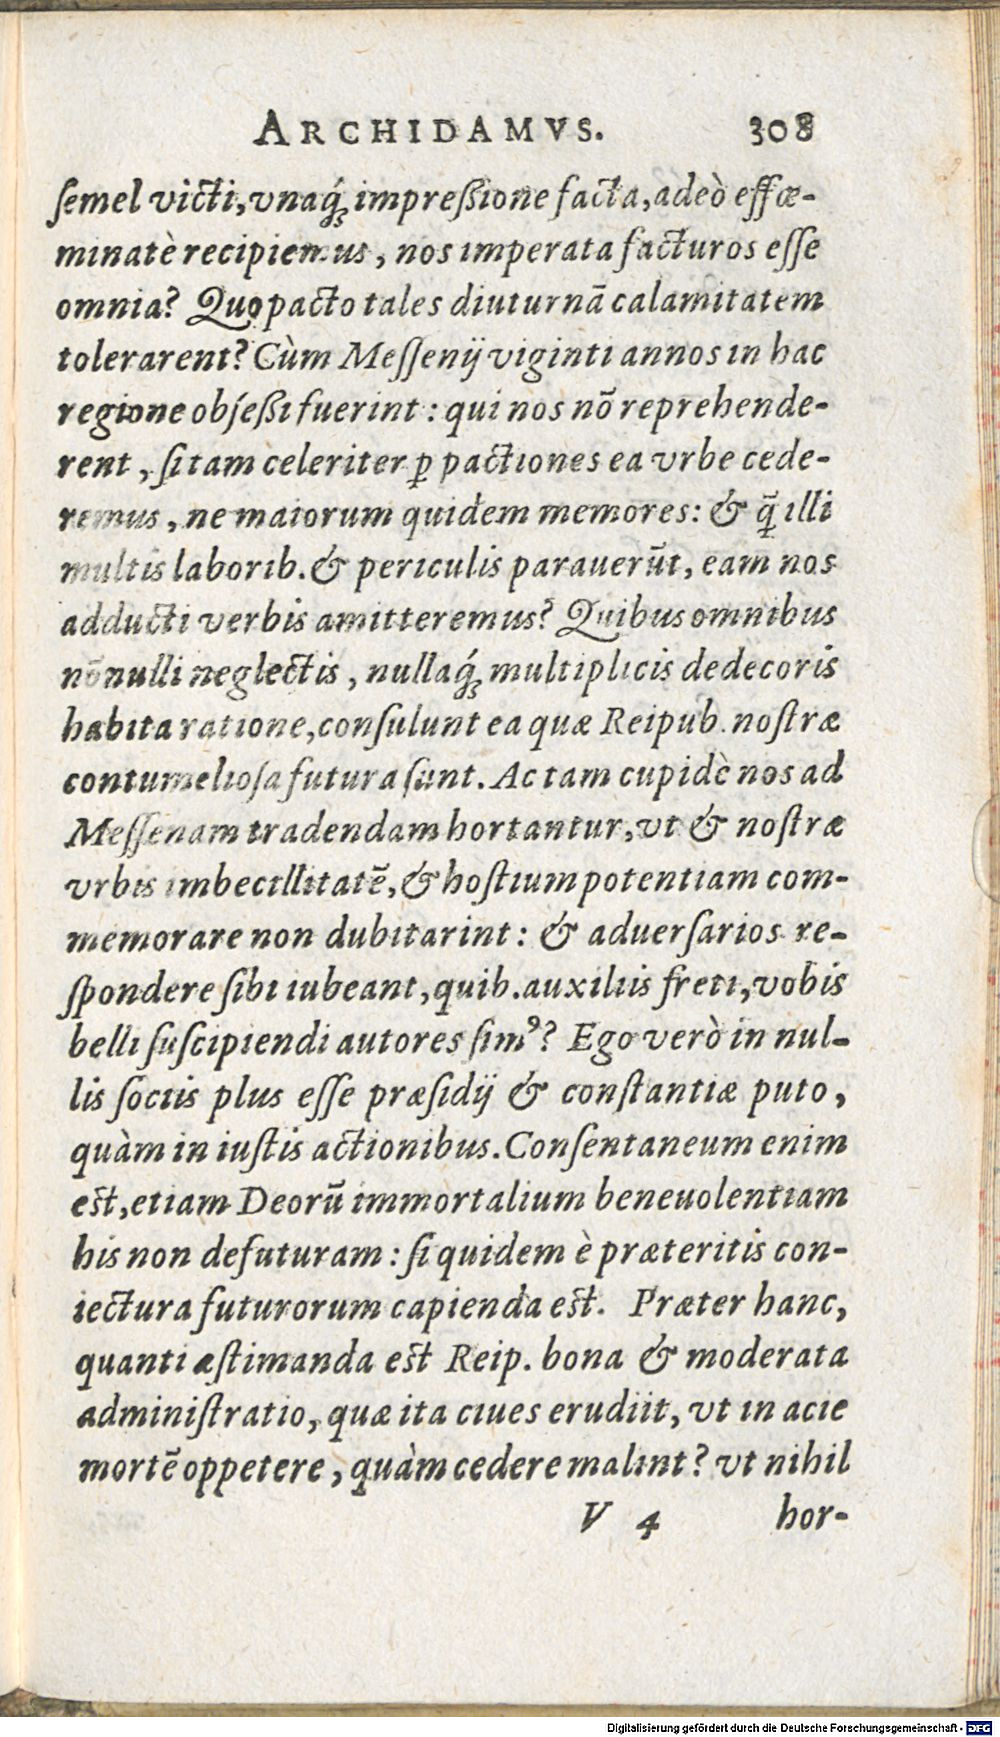 ARCHIDAMVS. 308
ſemel victi, vnaq́ꝫ impreßione facta, adeò effœ-
minatè recipiemus, nos imperata facturos eſſe
omnia? Quo pacto tales diuturnā calamitatem
tolerarent? Cùm Meſſenij viginti annos in hac
regione obſeßi fuerint: qui nos nō reprehende-
rent, ſi tam celeriter ꝑ pactiones ea vrbe cede-
remus, ne maiorum quidem memores: & q̄ illi
multis laborib. & periculis parauerūt, eam nos
adducti verbis amitteremus? Quibus omnibus
nōnulli neglectis, nullaq́ꝫ multiplicis dedecoris
habita ratione, conſulunt ea quæ Reipub. noſtræ
contumelioſa futura ſunt. Ac tam cupidè nos ad
Meſſenam tradendam hortantur, vt & noſtræ
vrbis imbecillitatē, & hoſtium potentiam com-
memorare non dubitarint: & aduerſarios re-
ſpondere ſibi iubeant, quib. auxiliis freti, vobis
belli ſuſcipiendi autores ſimꝰ? Ego verò in nul-
lis ſociis plus eſſe præſidij & conſtantiæ puto,
quàm in iuſtis actionibus. Conſentaneum enim
eſt, etiam Deorū immortalium beneuolentiam
his non defuturam: ſi quidem è præteritis con-
iectura futurorum capienda eſt. Præter hanc,
quanti æſtimanda eſt Reip. bona & moderata
adminiſtratio, quæ ita ciues erudiit, vt in acie
mortē oppetere, quàm cedere malint? vt nihil
V 4 hor-
Digitalisierung gefördert durch die Deutsche Forschungsgemeinschaft - DFG